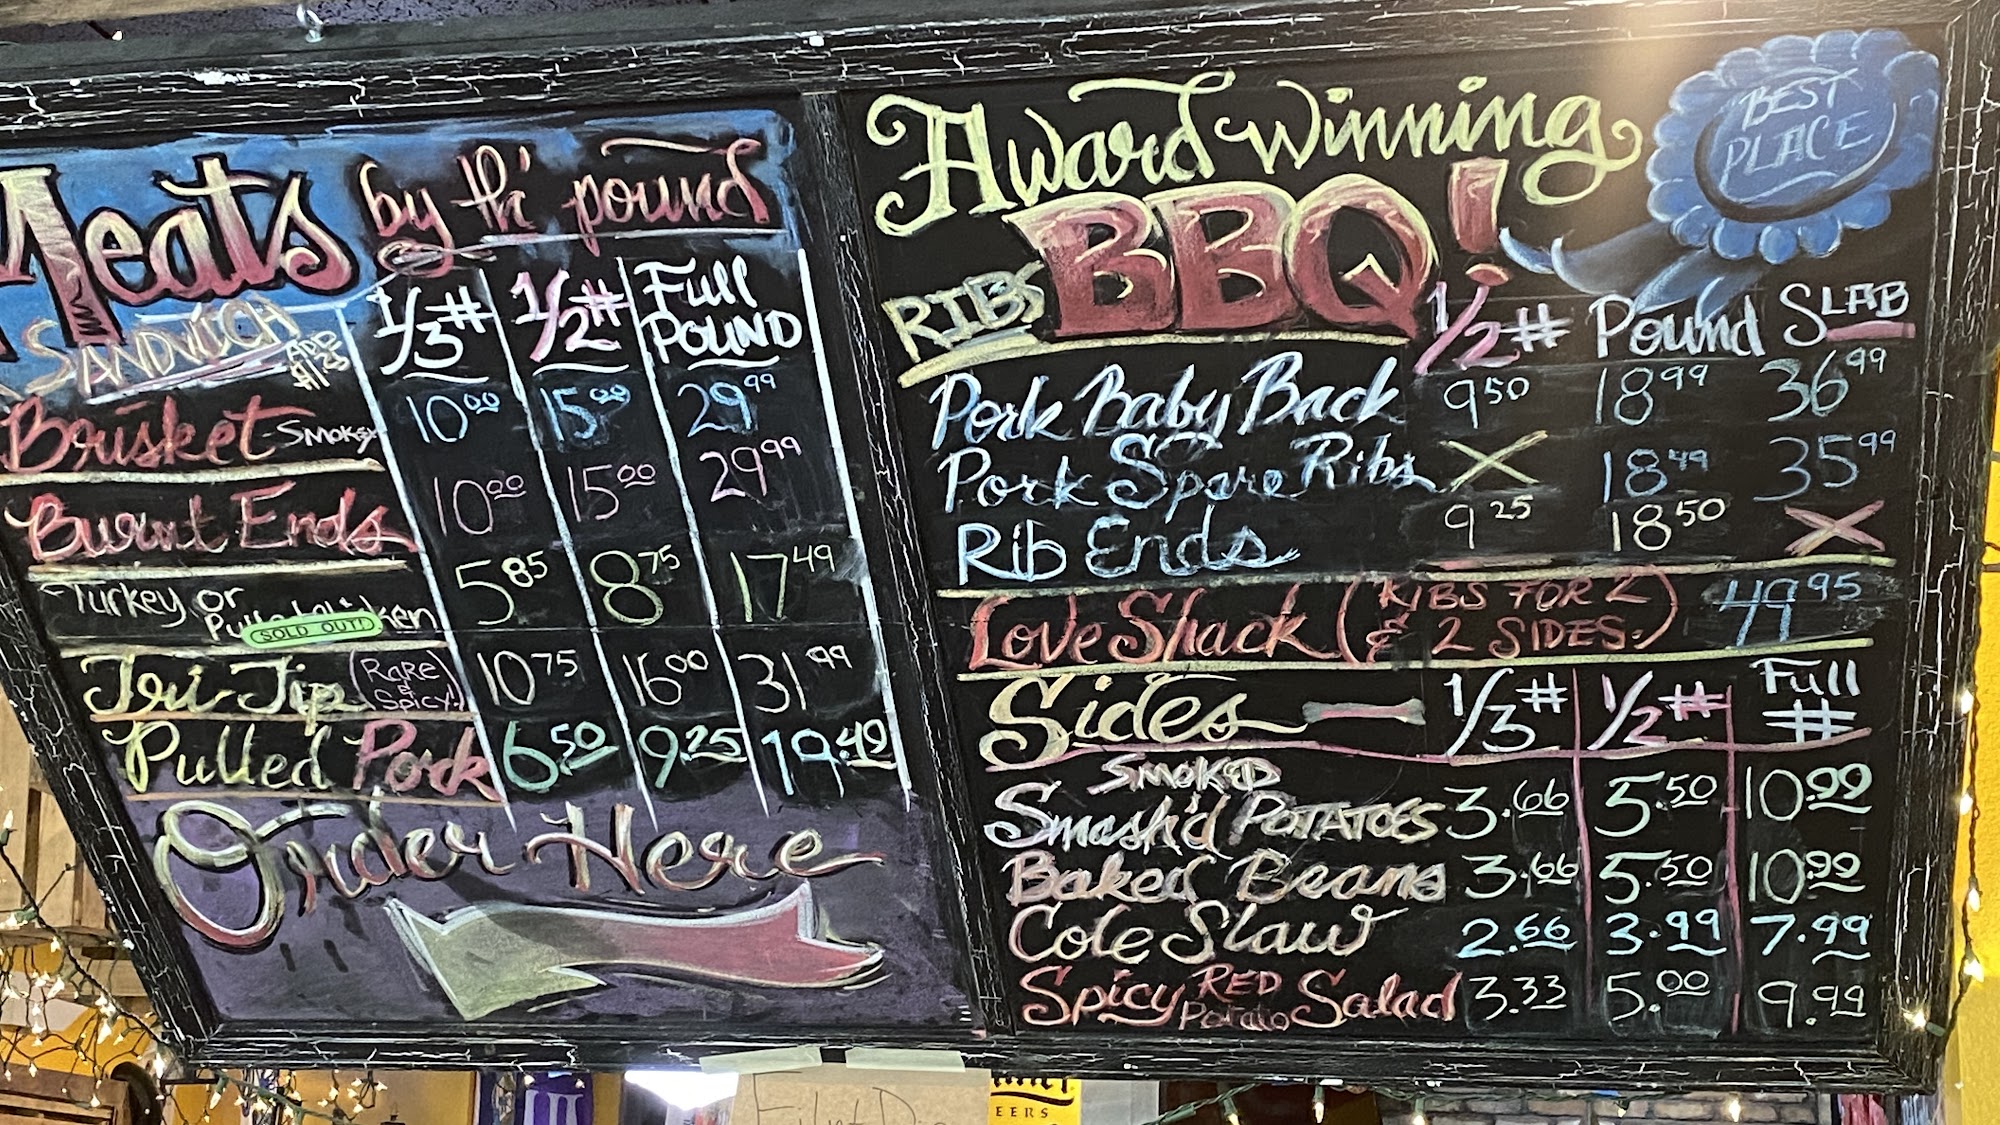 Meats by th' pound
SANDWICH ADD 1/3# 1/2# Full POUND
Brisket - Smokey 10.00 15.00 29.99
Burnt Ends 10.00 15.00 29.99
Turkey or
SOLD OUT! 5.85 8.75 17.49
Tri-Tip (Rare & Spicy!) 10.75 16.00 31.99
Pulled Pork 6.50 9.25 19.49
Order Here
Award Winning
BBQ!
BEST
PLACE
RIBS 1/2# Pound SLAB
Pork Baby Back 9.50 18.99 36.99
Pork Spare Ribs X 18.49 35.99
Rib Ends 9.25 18.50 X
Love Shack (RIBS FOR 2 & 2 SIDES.) 49.95
Sides 1/3# 1/2# Full #
SMOKED
Smash'd POTATOES 3.66 5.50 10.99
Baked Beans 3.66 5.50 10.99
Cole Slaw 2.66 3.99 7.99
Spicy RED Potato Salad 3.33 5.00 9.99
EERS